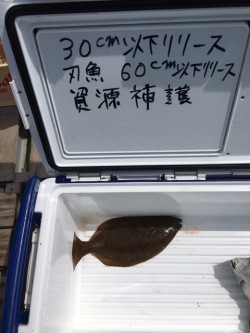 30cm以下リリース
刃魚 60cm以下リリース
資源補護